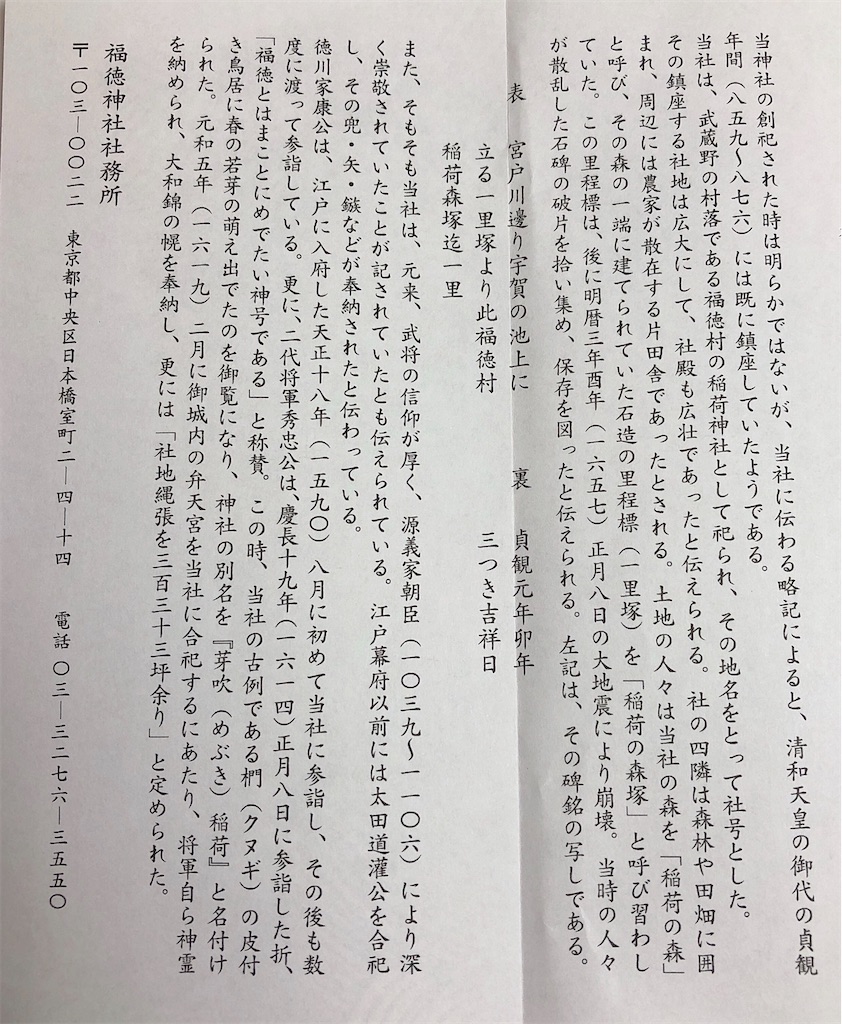 当神社の創祀された時は明らかではないが、当社に伝わる略記によると、清和天皇の御代の貞観
年間（八五九〜八七六）には既に鎮座していたようである。
当社は、武蔵野の村落である福徳村の稲荷神社として祀られ、その地名をとって社号とした。
その鎮座する社地は広大にして、社殿も広壮であったと伝えられる。社の四隣は森林や田畑に囲
まれ、周辺には農家が散在する片田舎であったとされる。土地の人々は当社の森を「稲荷の森」
と呼び、その森の一端に建てられていた石造の里程標（一里塚）を「稲荷の森塚」と呼び習わし
ていた。この里程標は、後に明暦三年酉年（一六五七）正月八日の大地震により崩壊。当時の人々
が散乱した石碑の破片を拾い集め、保存を図ったと伝えられる。左記は、その碑銘の写しである。
表　宮戸川邊り宇賀の池上に　　裏　貞観元年卯年
立る一里塚より此福徳村　　三つき吉祥日
稲荷森塚迄一里
また、そもそも当社は、元来、武将の信仰が厚く、源義家朝臣（一〇三九〜一一〇六）により深
く崇敬されていたことが記されていたとも伝えられている。江戸幕府以前には太田道灌公を合祀
し、その兜・矢・鏃などが奉納されたと伝わっている。
徳川家康公は、江戸に入府した天正十八年（一五九〇）八月に初めて当社に参詣し、その後も数
度に渡って参詣している。更に、二代将軍秀忠公は、慶長十九年（一六一四）正月八日に参詣した折、
「福徳とはまことにめでたい神号である」と称賛。この時、当社の古例である椚（クヌギ）の皮付
き鳥居に春の若芽の萌え出でたのを御覧になり、神社の別名を『芽吹（めぶき）稲荷』と名付け
られた。元和五年（一六一九）二月に御城内の弁天宮を当社に合祀するにあたり、将軍自ら神霊
を納められ、大和錦の幌を奉納し、更には「社地縄張を三百三十三坪余り」と定められた。
福徳神社社務所
〒一〇三―〇〇二二　東京都中央区日本橋室町二―四―十四　電話〇三―三二七六―三五五〇